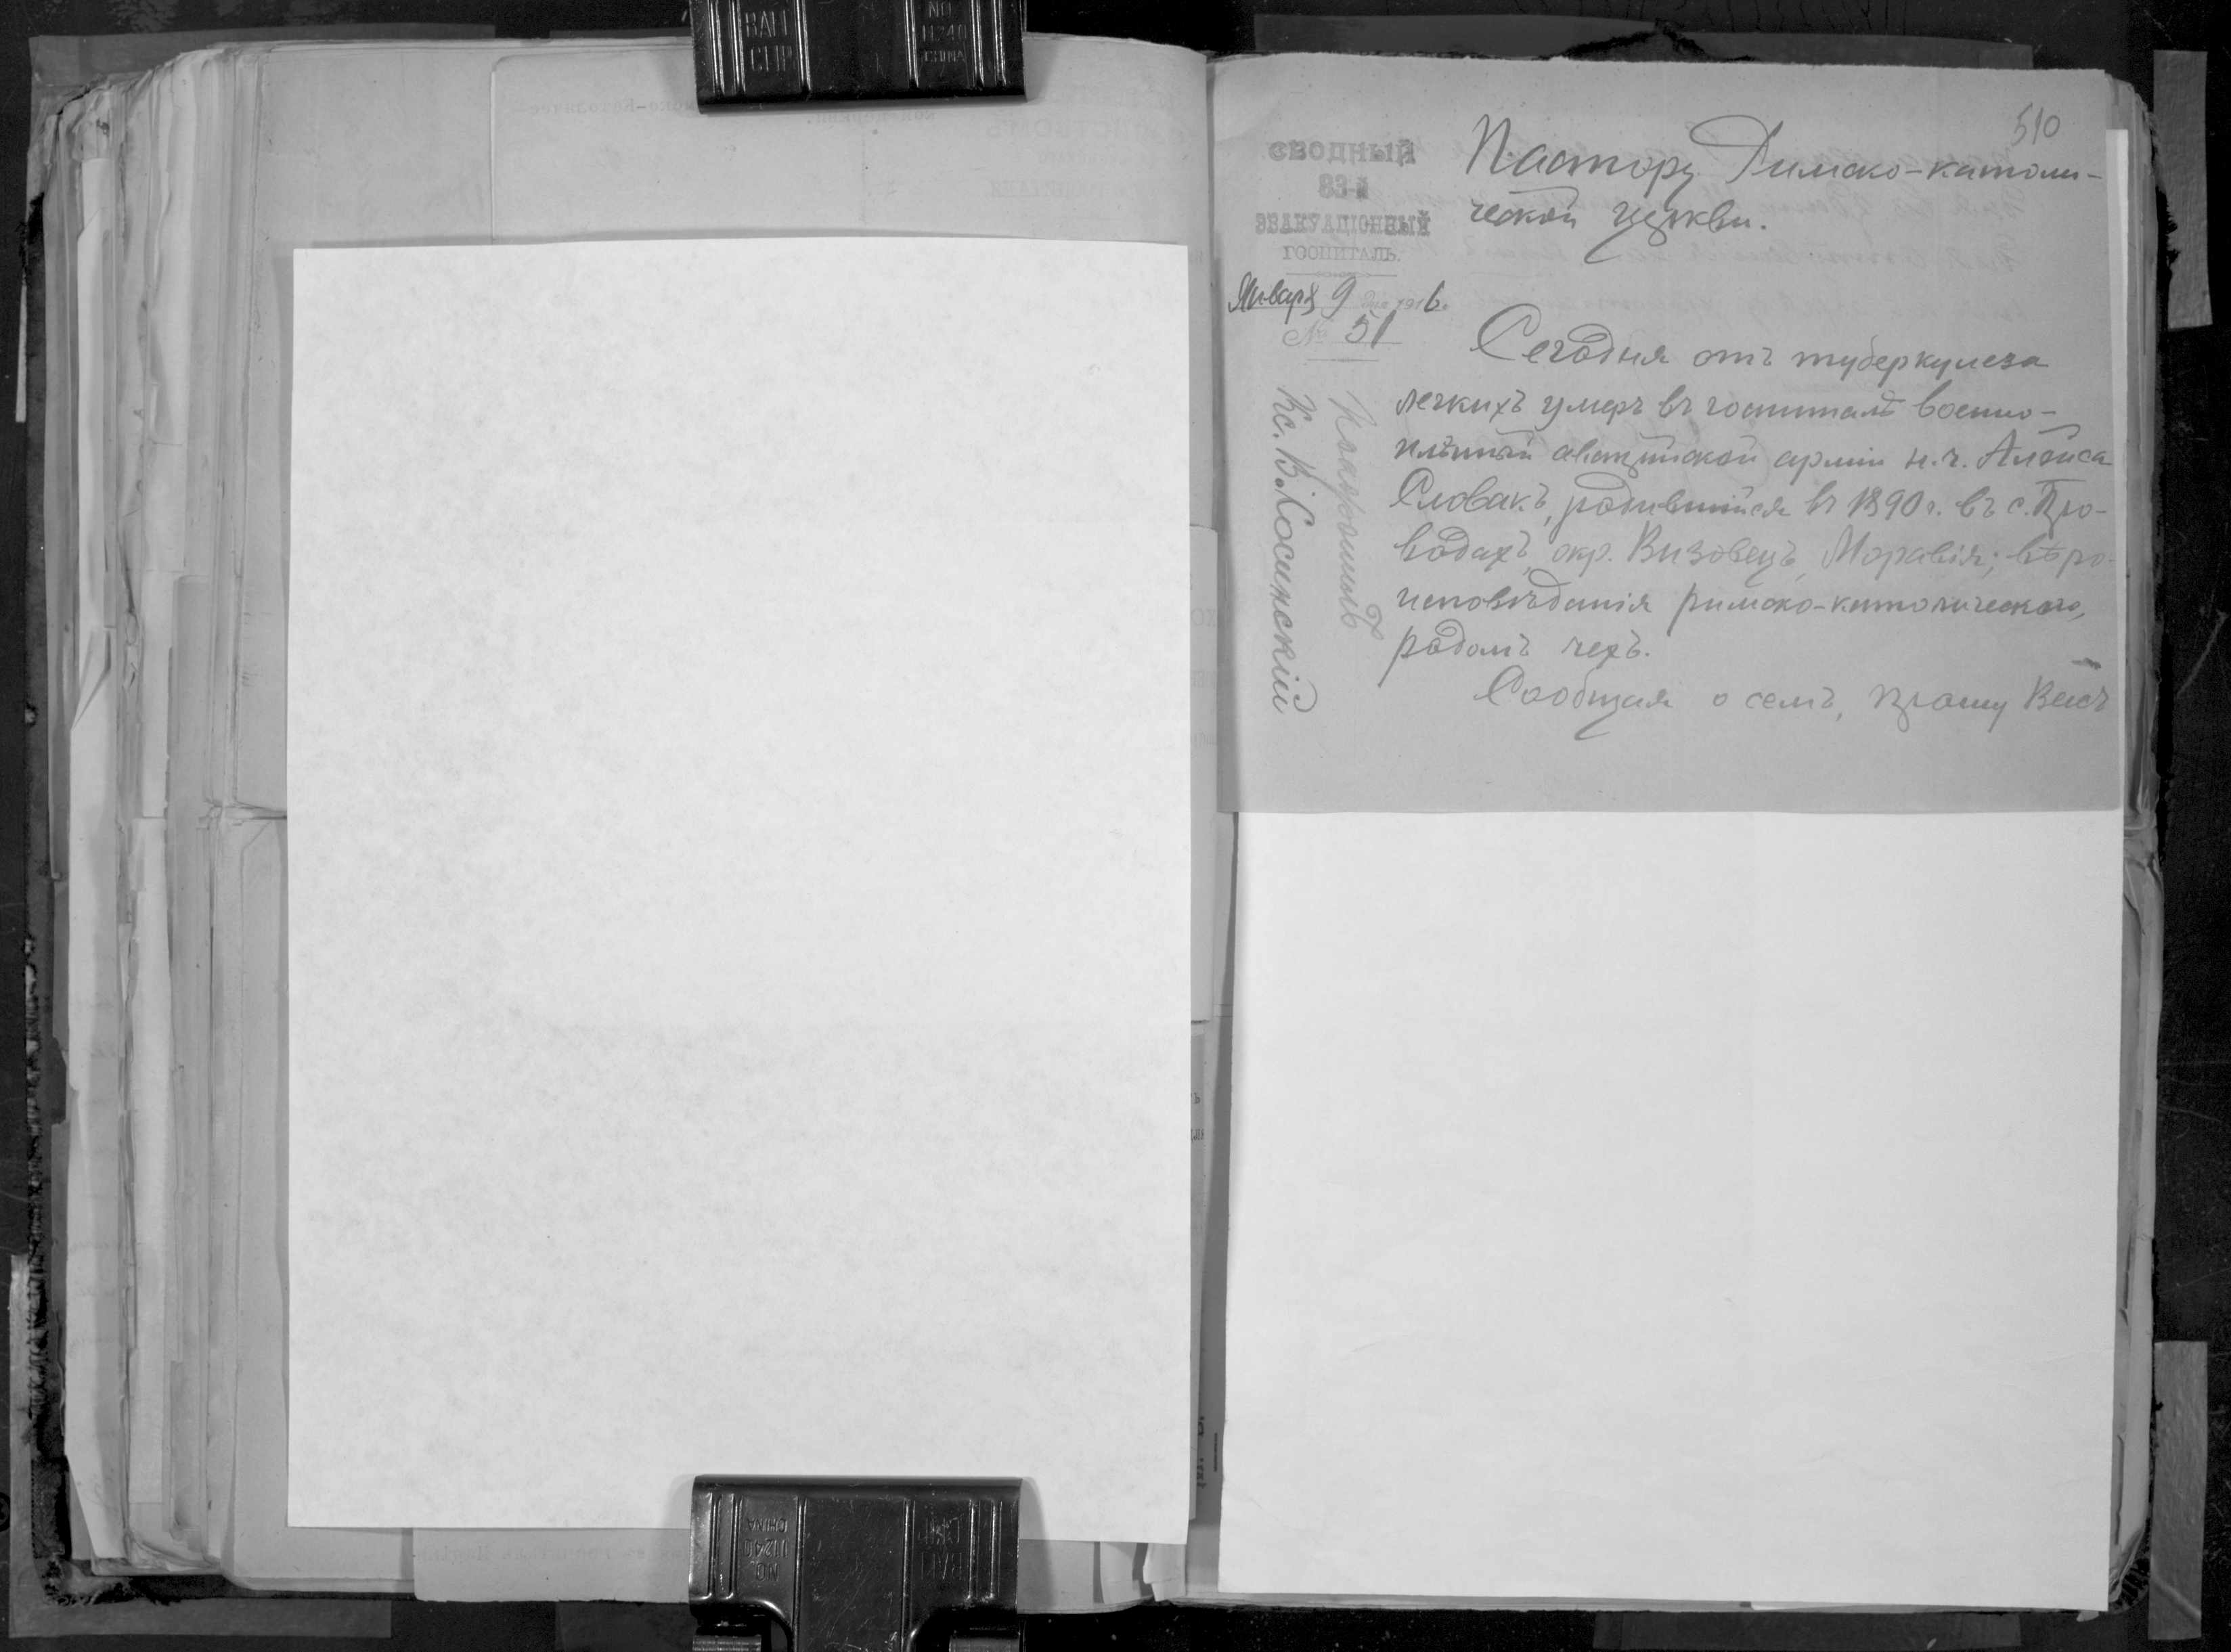 510
СВОДНЫЙ
83-й
ЭВАКУАЦІОННЫЙ
ГОСПИТАЛЬ.
Января 9 дня 1916.
№ 51
Пастору Римско-католи-
ческой церкви.
Сегодня отъ туберкулеза
легкихъ умеръ въ госпиталѣ военно-
плѣнный австрійской арміи н.ч. Алоиса
Словакъ, родившійся въ 1890 г. въ с. Про-
водахъ, окр. Визовецъ, Моравія; вѣро-
исповѣданія римско-католическаго,
родомъ чехъ.
Сообщая о семъ, прошу Васъ
Похоронилъ
Кс. В. Косинскій
BALL
CLIP
NO
11240
CHINA